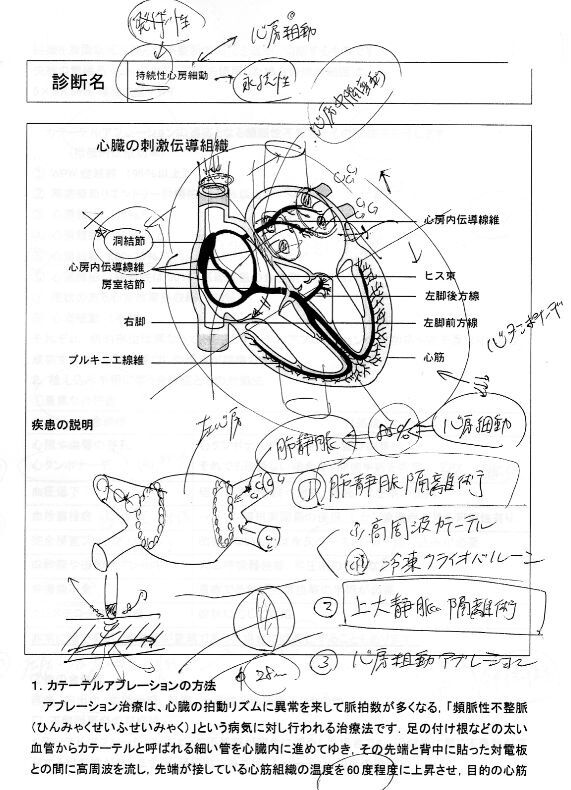 発作性
心房粗動
診断名
持続性心房細動
永続性
心房中隔
心臓の刺激伝導組織
洞結節
心房内伝導線維
心房内伝導線維
房室結節
ヒス束
左脚後方線
右脚
左脚前方線
心タンポナーデ
プルキニエ線維
心筋
疾患の説明
左心房
肺静脈
心房細動
① 肺静脈隔離術
i) 高周波カテーテル
ii) 冷凍クライオバルーン
② 上大静脈 隔離術
③ 心房粗動アブレーション
1. カテーテルアブレーションの方法
アブレーション治療は、心臓の拍動リズムに異常を来して脈拍数が多くなる，「頻脈性不整脈
（ひんみゃくせいふせいみゃく）」という病気に対し行われる治療法です．足の付け根などの太い
血管からカテーテルと呼ばれる細い管を心臓内に進めてゆき，その先端と背中に貼った対電板
との間に高周波を流し，先端が接している心筋組織の温度を60度程度に上昇させ，目的の心筋